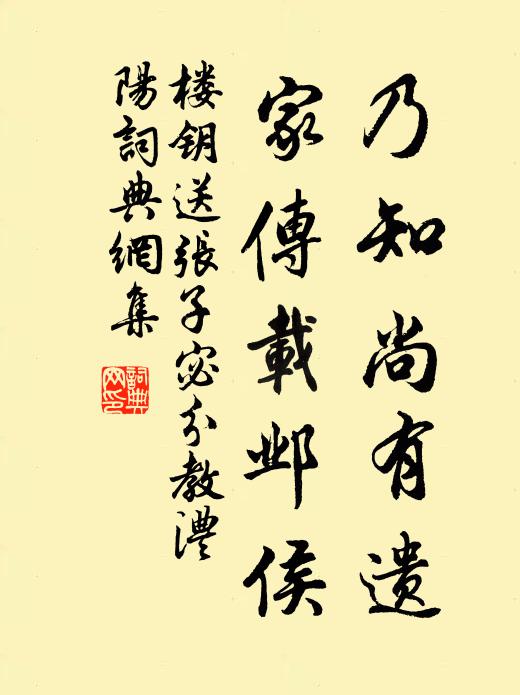 乃知尚有遗
家傳載邺侯
楼钥送張子宓分教澧
陽詞典網集
詞典
网印